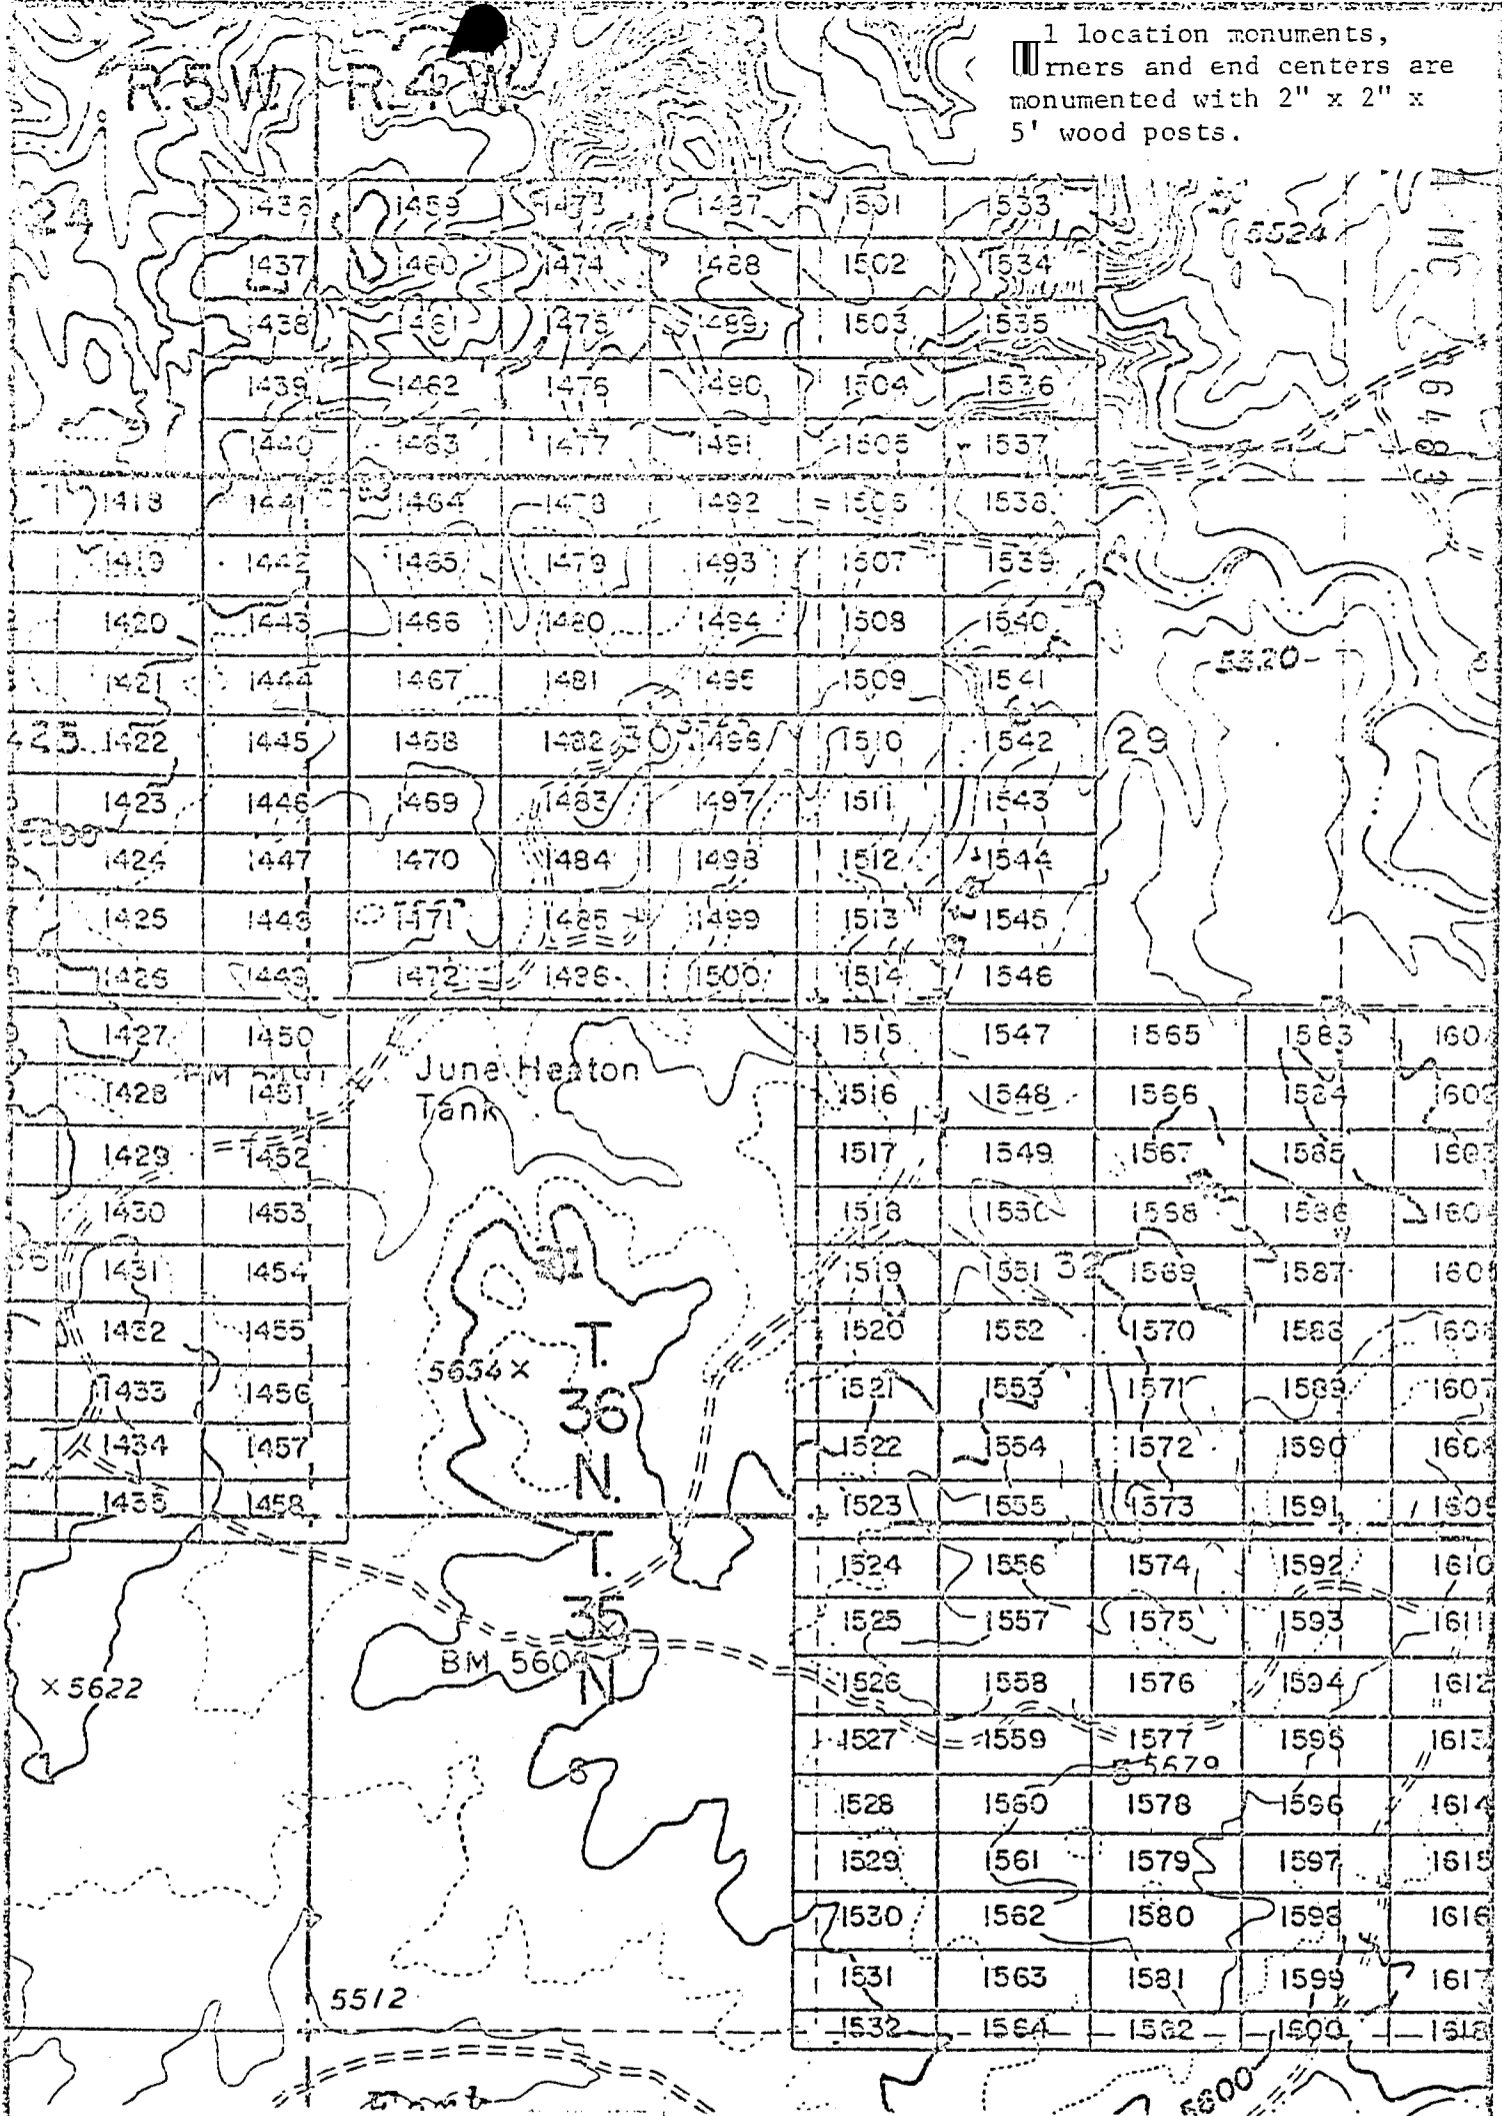 l location monuments,
rners and end centers are
monumented with 2" x 2" x
5' wood posts.
R.5W. R.4W.
24
1459 1473 1487 1501 1533
5524
1437 1460 1474 1488 1502 1534
1438 1461 1475 1489 1503 1535
1439 1462 1476 1490 1504 1536
1440 1463 1477 1491 1505 1537
6483
1418 1441 1464 1478 1492 1506 1538
1419 1442 1465 1479 1493 1507 1539
1420 1443 1466 1480 1494 1508 1540
1421 1444 1467 1481 1495 1509 1541
5520
1422 1445 1468 1482 30 1496 1510 1542 29
1423 1446 1469 1483 1497 1511 1543
1424 1447 1470 1484 1498 1512 1544
1425 1448 1471 1485 1499 1513 1545
1426 1449 1472 1486 1500 1514 1546
1427 1450 1515 1547 1565 1583 160
June Heaton
Tank
1428 1451 1516 1548 1566 1584 160
1429 1452 1517 1549 1567 1585
1430 1453 1518 1550 1568 1586 160
31
1431 1454 1519 1551 32 1569 1587 160
1432 1455 1520 1552 1570 1588 160
5634 X
T.
36
N.
1433 1456 1521 1553 1571 1589 1607
1434 1457 1522 1554 1572 1590 160
1435 1458 1523 1555 1573 1591 160
T.
35
N
1524 1556 1574 1592 1610
1525 1557 1575 1593 1611
BM 560
X 5622
1526 1558 1576 1594 1612
1527 1559 1577 1595 1613
5 5679
1
6
1528 1560 1578 1596 1614
1529 1561 1579 1597 1615
1530 1562 1580 1598 1616
1531 1563 1581 1599 1617
5512
1532 1564 1582 1600 1618
5600